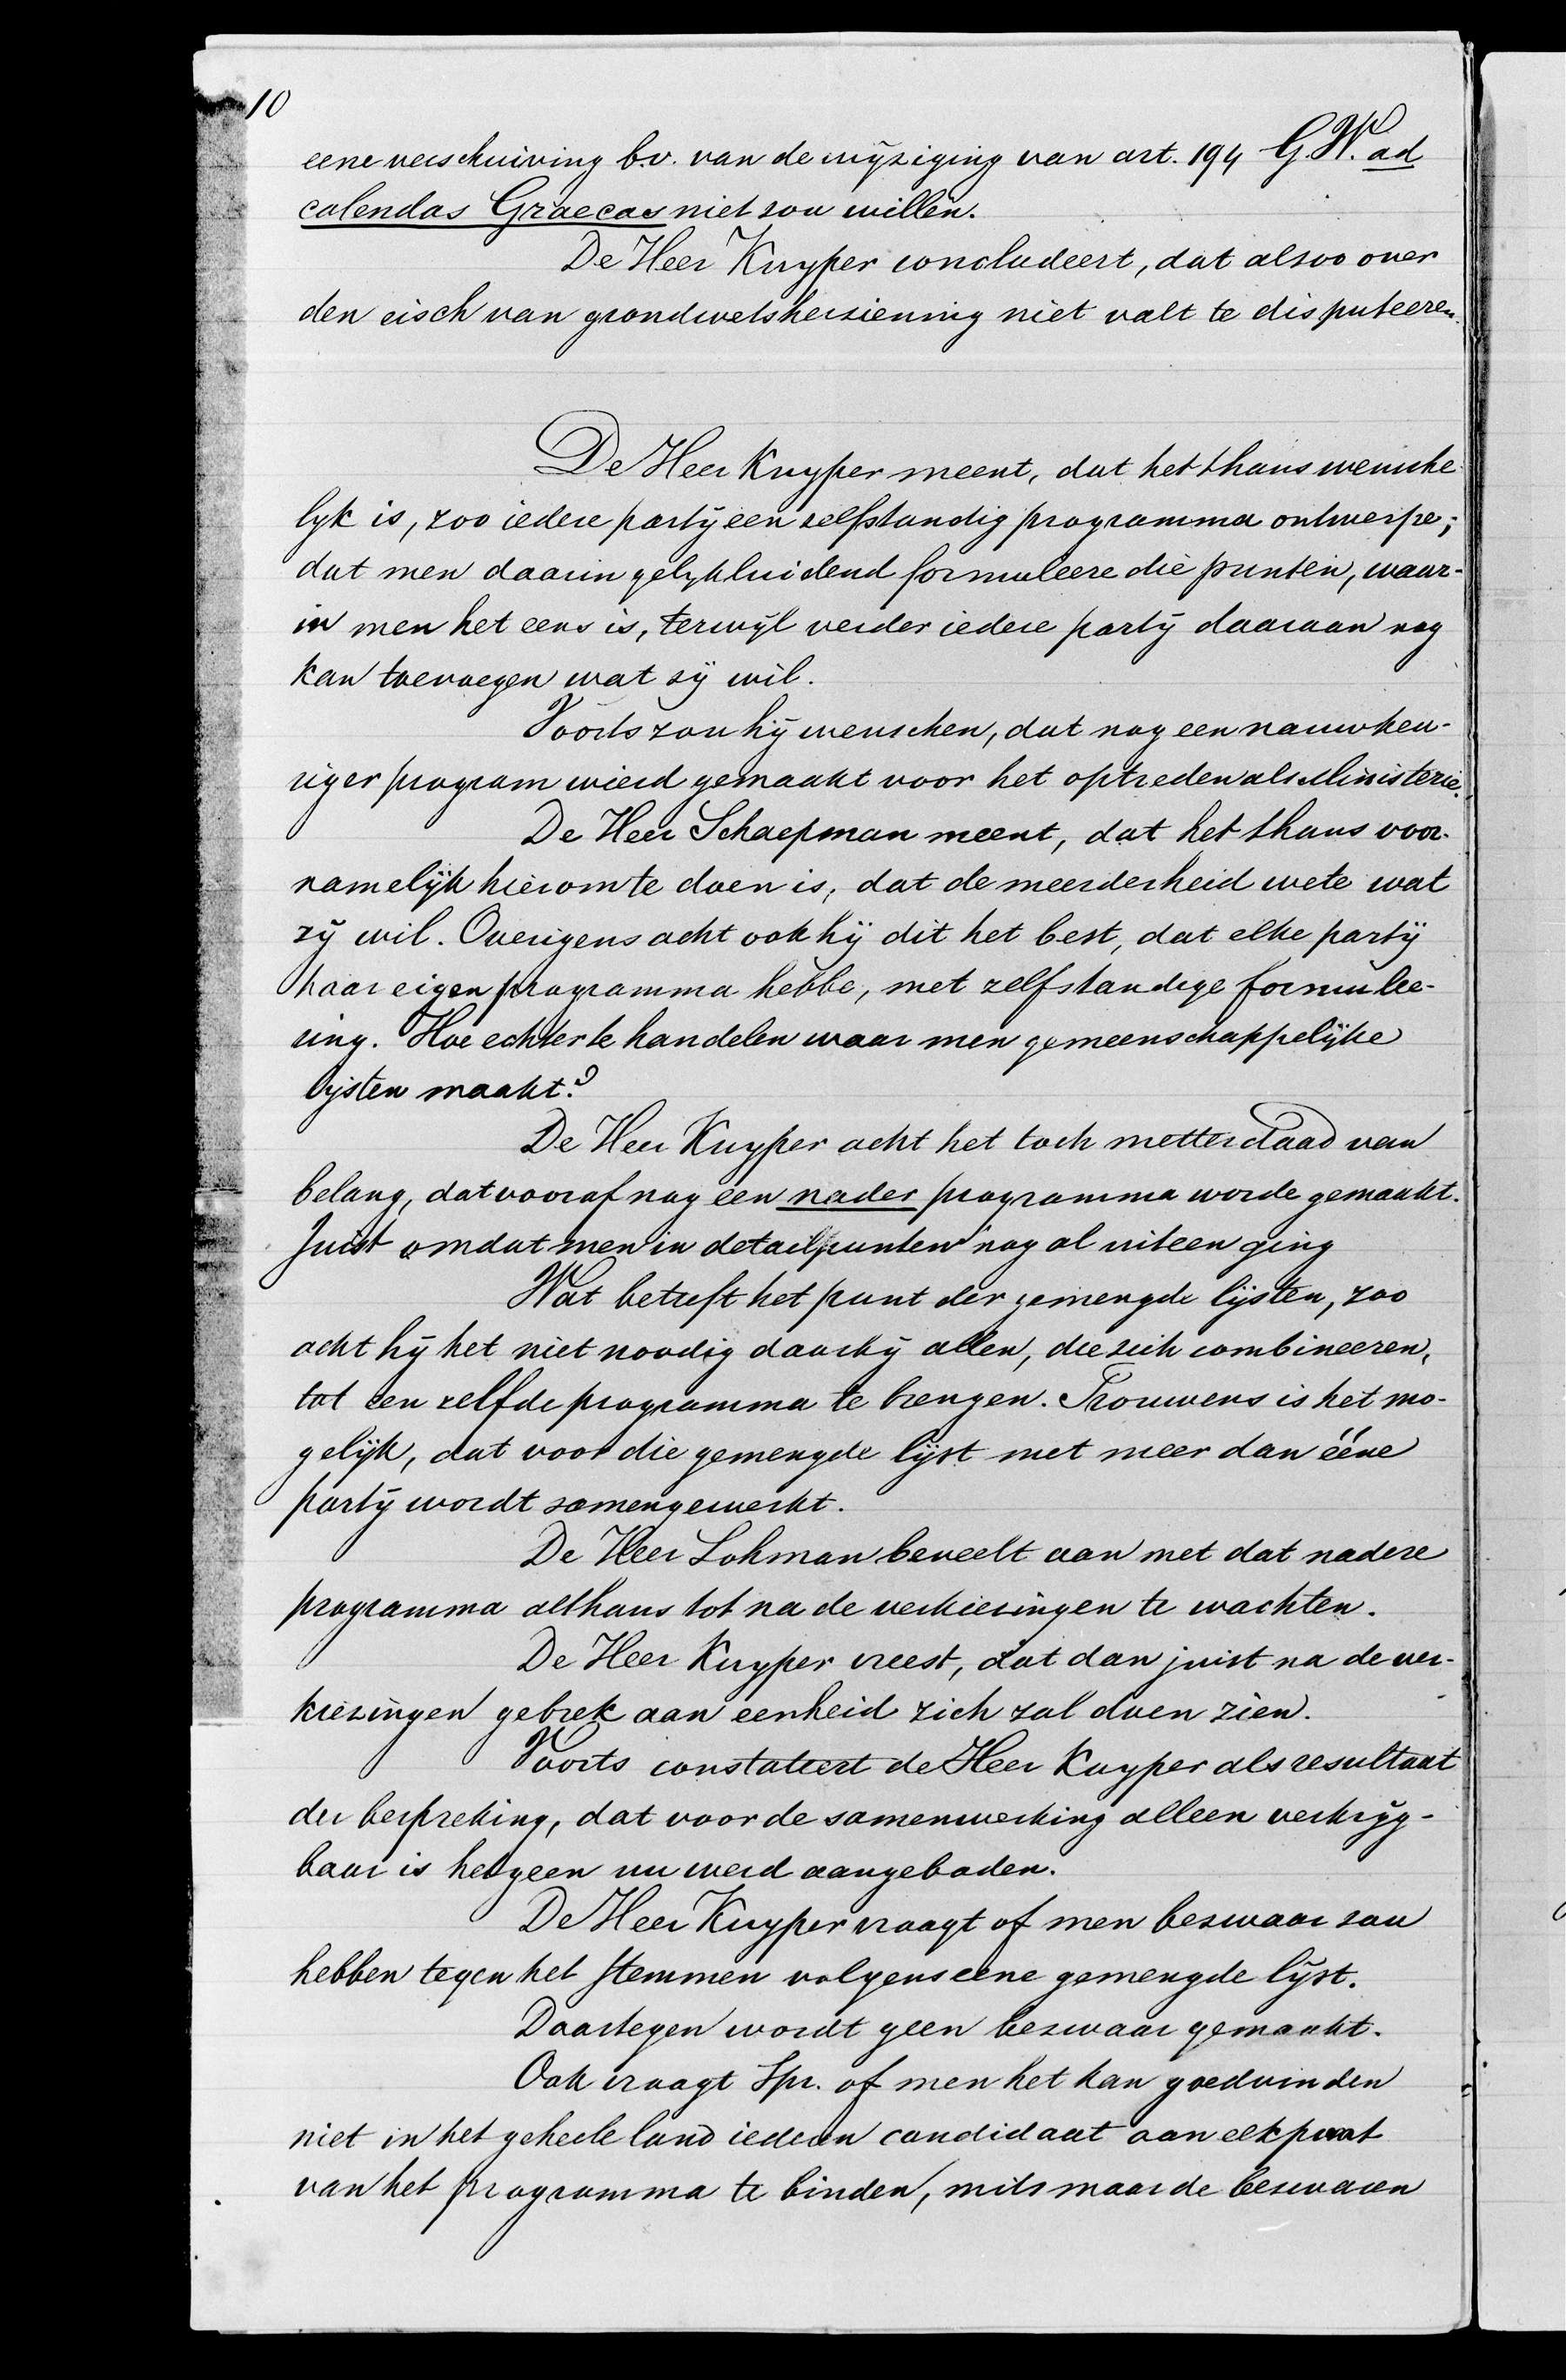 10
eene verschuiving b.v. van de wijziging van art. 194 G.W. ad
calendas Graecas niet zou willen.
De Heer Kuyper concludeert, dat alzoo over
den eisch van grondwetsherziening niet valt te disputeeren.
De Heer Kuyper meent, dat het thans wensche
lijk is, zoo iedere partij een zelfstandig programma ontwerpe;
dat men daarin gelijkluidend formuleere die punten, waar-
in men het eens is, terwijl verder iedere partij daaraan nog
kan toevoegen wat zij wil.
Voorts zou hij wenschen, dat nog een nauwkeu-
riger program wierd gemaakt voor het optreden als Ministerie.
De Heer Schaepman meent, dat het thans voor-
namelijk hierom te doen is, dat de meerderheid wete wat
zij wil. Overigens acht ook hij dit het best, dat elke partij
haar eigen programma hebbe, met zelfstandige formulee-
ring. Hoe echter te handelen waar men gemeenschappelijke
lijsten maakt?
De Heer Kuyper acht het toch metterdaad van
belang, dat vooraf nog een nader programma worde gemaakt.
Juist omdat men in detailpunten nog al uiteen ging
Wat betreft het punt der gemengde lijsten, zoo
acht hij het niet noodig daarbij allen, die zich combineeren,
tot een zelfde programma te brengen. Trouwens is het mo-
gelijk, dat voor die gemengde lijst met meer dan ééne
partij wordt samengewerkt.
De Heer Lohman beveelt aan met dat nadere
programma althans tot na de verkiezingen te wachten.
De Heer Kuyper vreest, dat dan juist na de ver-
kiezingen gebrek aan eenheid zich zal doen zien.
Voorts constateert de Heer Kuyper als resultaat
der bespreking, dat voor de samenwerking alleen verkrijg-
baar is hetgeen nu werd aangeboden.
De Heer Kuyper vraagt of men bezwaar zou
hebben tegen het stemmen volgens eene gemengde lijst.
Daartegen wordt geen bezwaar gemaakt.
Ook vraagt Spr. of men het kan goedvinden
niet in het geheele land iederen candidaat aan elk punt
van het programma te binden, mits maar de bezwaren